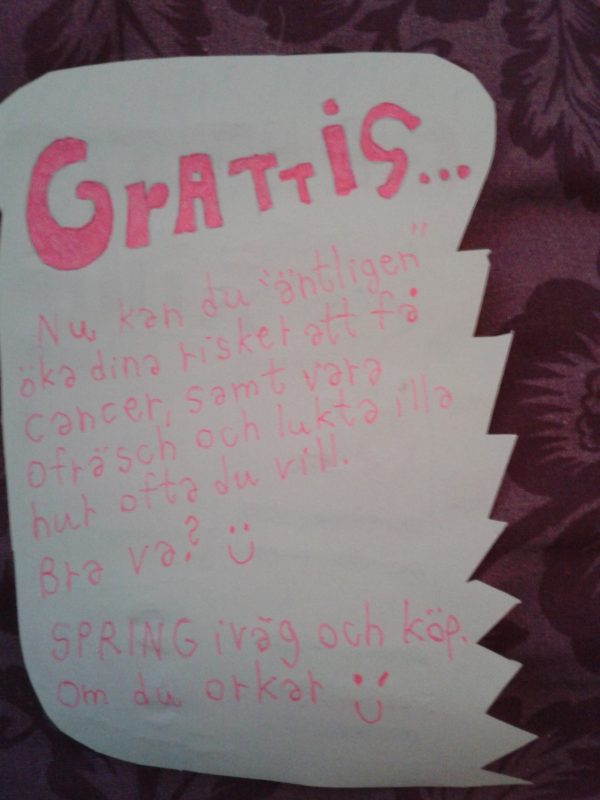 GrATTiS...
Nu kan du "äntligen"
öka dina risker att få
cancer, samt vara
ofräsch och lukta illa
hur ofta du vill.
Bra va? :)
SPRING iväg och köp.
Om du orkar :)